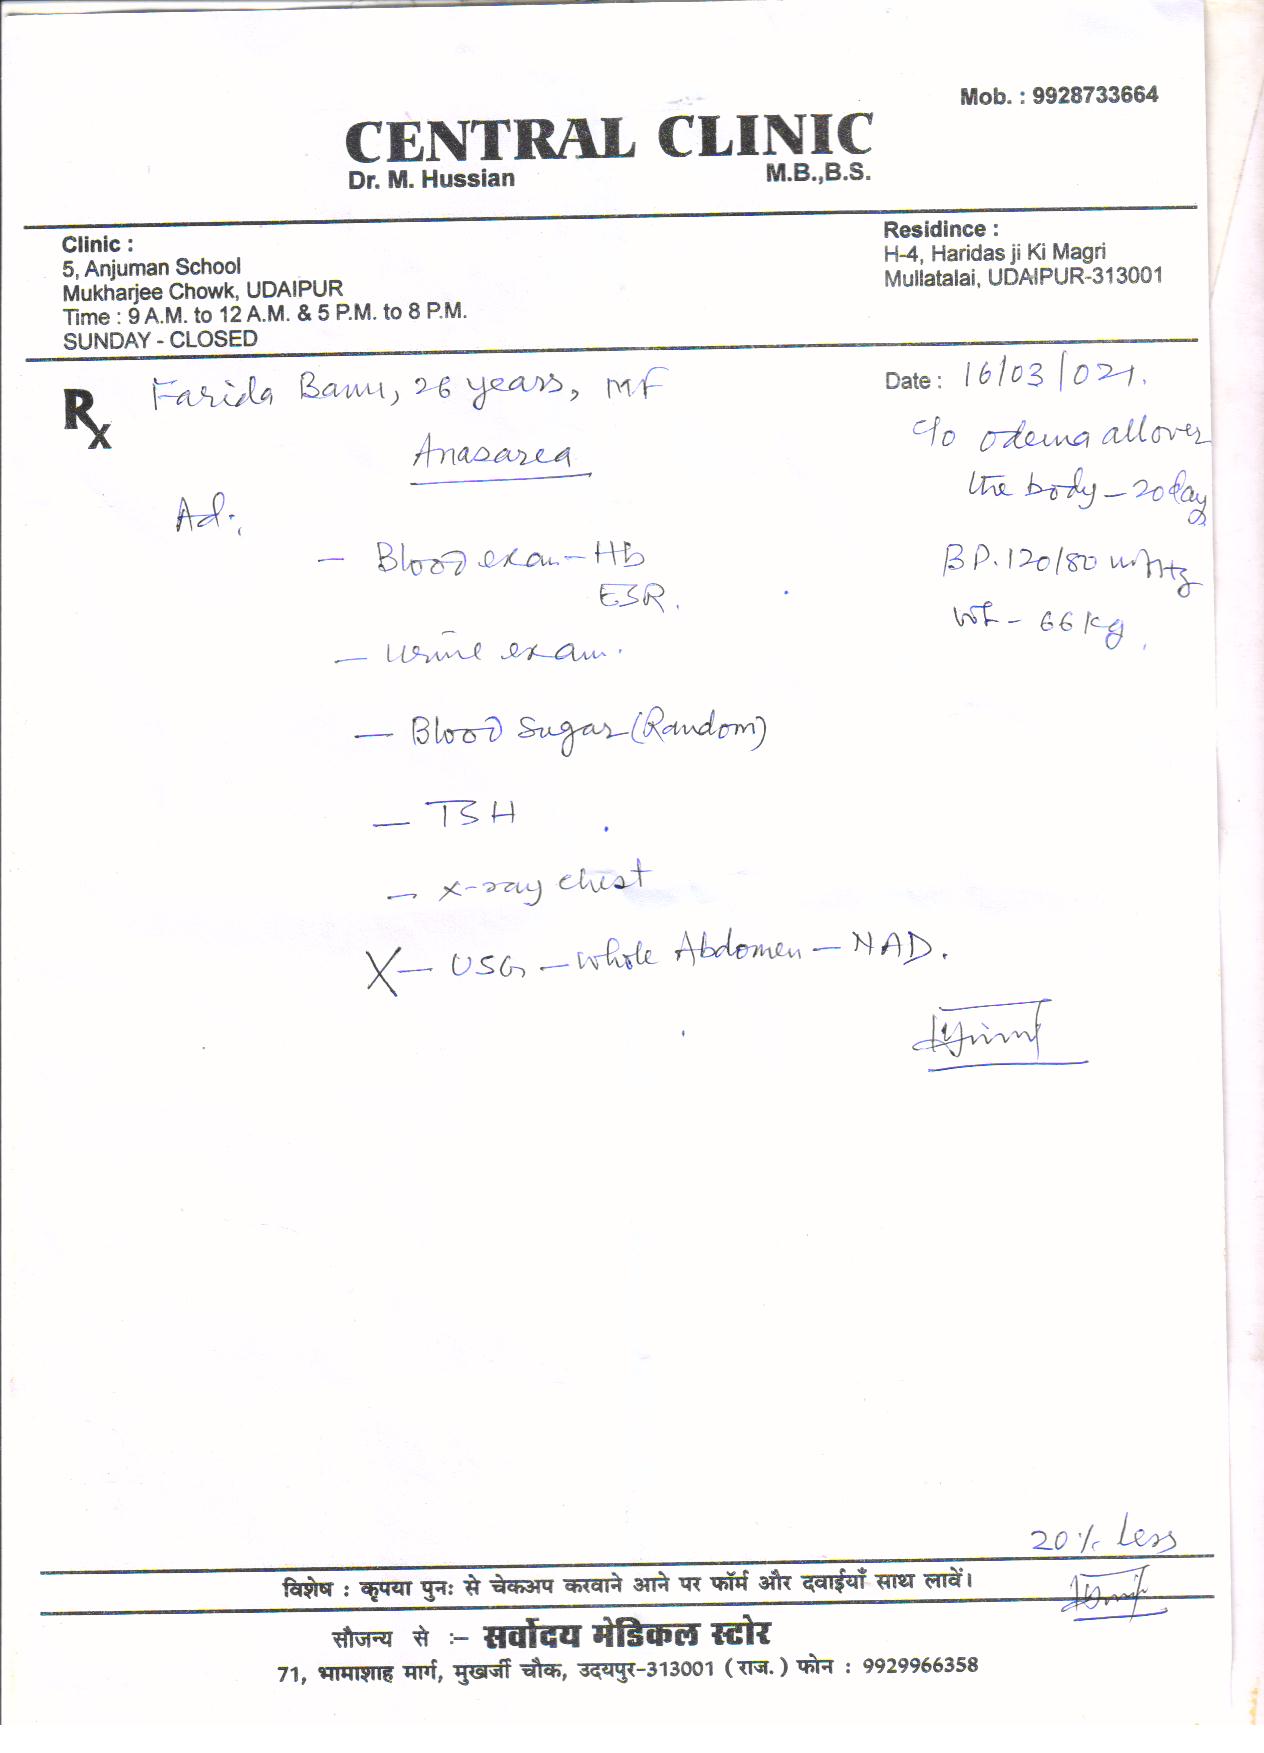 Mob. : 9928733664
CENTRAL CLINIC
Dr. M. Hussian M.B.,B.S.
Clinic :
5, Anjuman School
Mukharjee Chowk, UDAIPUR
Time : 9 A.M. to 12 A.M. & 5 P.M. to 8 P.M.
SUNDAY - CLOSED
Residince :
H-4, Haridas ji Ki Magri
Mullatalai, UDAIPUR-313001
Rx Farida Banu, 26 years, MF
Date : 16/03/021.
Anasarca
c/o odema all over
the body - 20 days
BP. 120/80 mmHg
Wt - 66 kg.
Ad:
- Blood exam - Hb
ESR.
- Urine exam.
- Blood Sugar (Random)
- TSH
- X-ray chest
X - USG - Whole Abdomen - NAD.
20% Less
विशेष : कृपया पुनः से चेकअप करवाने आने पर फॉर्म और दवाईयाँ साथ लावें।
सौजन्य से :- सर्वोदय मेडिकल स्टोर
71, भामाशाह मार्ग, मुखर्जी चौक, उदयपुर-313001 (राज.) फोन : 9929966358